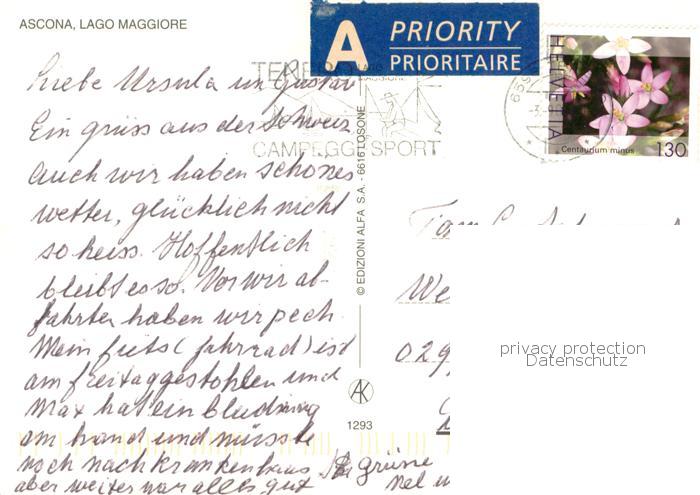 ASCONA, LAGO MAGGIORE
A PRIORITY
PRIORITAIRE
TENERO
CAMPEGGI SPORT
HELVETIA
Centaurium minus 130
Liebe Ursula un Gustav
Ein grüss aus der Schweiz
Auch wir haben schönes
wetter, glücklich nicht
so heiss. Hoffentlich
bleibt es so. Vor wir ab-
fahrten haben wir pech.
Mein fiets (fahrrad) ist
am freitag gestohlen und
Max hat ein bludung
am hand und müsste
noch nach krankenhaus
aber weiter war alles gut
Grüne
Nel
© EDIZIONI ALFA S.A. - 6616 LOSONE
AK
1293
We
029
privacy protection
Datenschutz